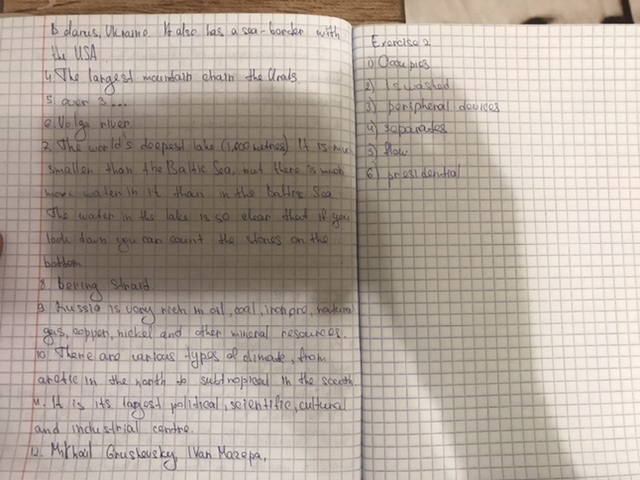 Belarus, Ukraine. It also has a sea-border with
the USA
4. The largest mountain chain the Urals
5. over 3...
6. Volga river
7. The world's deepest lake (1,600 metres) It is much
smaller than the Baltic Sea, but there is much
more water in it than in the Baltic Sea
The water in the lake is so clear that if you
look down you can count the stones on the
bottom
8 bering straid
9 Russia is very rich in oil, coal, iron pre, natural
gas, copper, nickel and other mineral resources.
10 There are various types of climate, from
arctic in the north to subtropical in the south
11. It is its largest political, scientific, cultural
and industrial centre.
12. Mikhail Grushevsky, Ivan Mazepa,
Exercise 2
1) Occupies
2) Is washed
3) peripheral devices
4) separades
5) flow
6) presidential